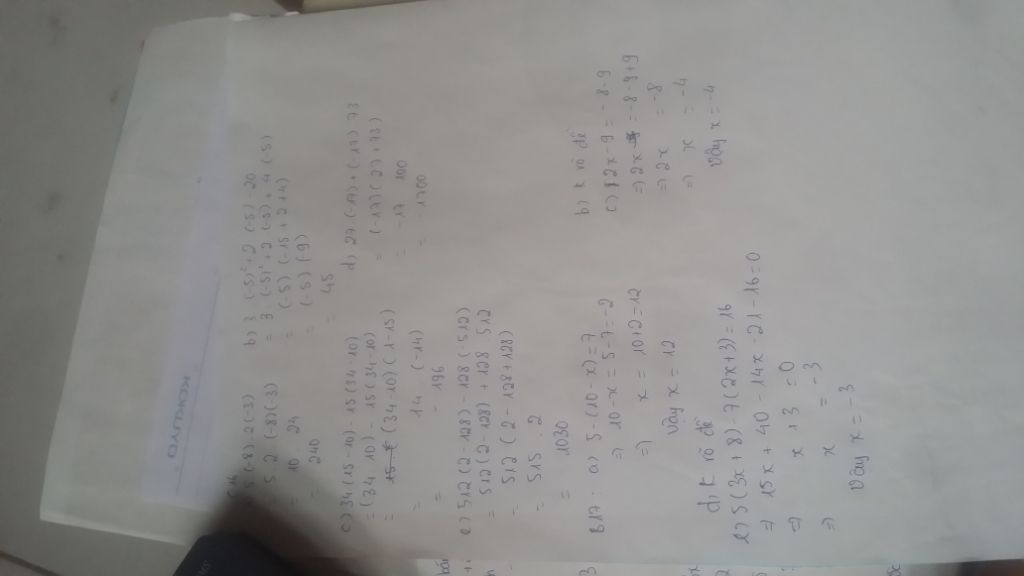 KONLUYO
C16
5(-8).2(-3)
= 5 2 (-8)(-3)
= 10 24
= 240
b) 3 (-5)² + 2 (-5) 20
= 3 (-5)² + 2 (-5) + 4 (-5)
= (-5) (-15 + 2 + 4)
= (-5) (-9)
= 45
c) 34(15-10) - 15(34-10)
= (34 10) - 15(34-10)
= (34-10) (1-15)
= 14 (-14)
= -196
d) 27 (-17) + (-17) 73
= (-17) (27 + 73)
= -17 100
= -1700
e) 512(2-128) - 128(-512)
= 512(2-128) + 128 512
= 512 (2 - 128 + 128)
= 515 . 2
= 1030
B17. a) 5 - (10 - x) = 7
=> 10 - x = 5 - 7 = -2
=> x = 10 + 2 = 12
Vậy x = 12
b) K rõ đề
c) 2x - 9 = -8-9
=> 2x = -8-9+9
=> 2x = -8
=> x = -4
Vậy x = -4
d) K rõ đề
e) 5(3x + 8) - 7(2x + 3) = 16
=> 15x + 40 - 14x - 21 - 16 = 0
=> x + 3 = 0
=> x = -3
Vậy x = -3